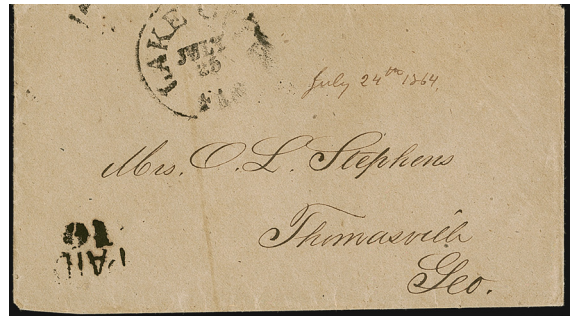 LAKE C
JULY
25
Fla
July 24th 1864.
Mrs. O. L. Stephens
Thomasville
Geo.
PAID
10